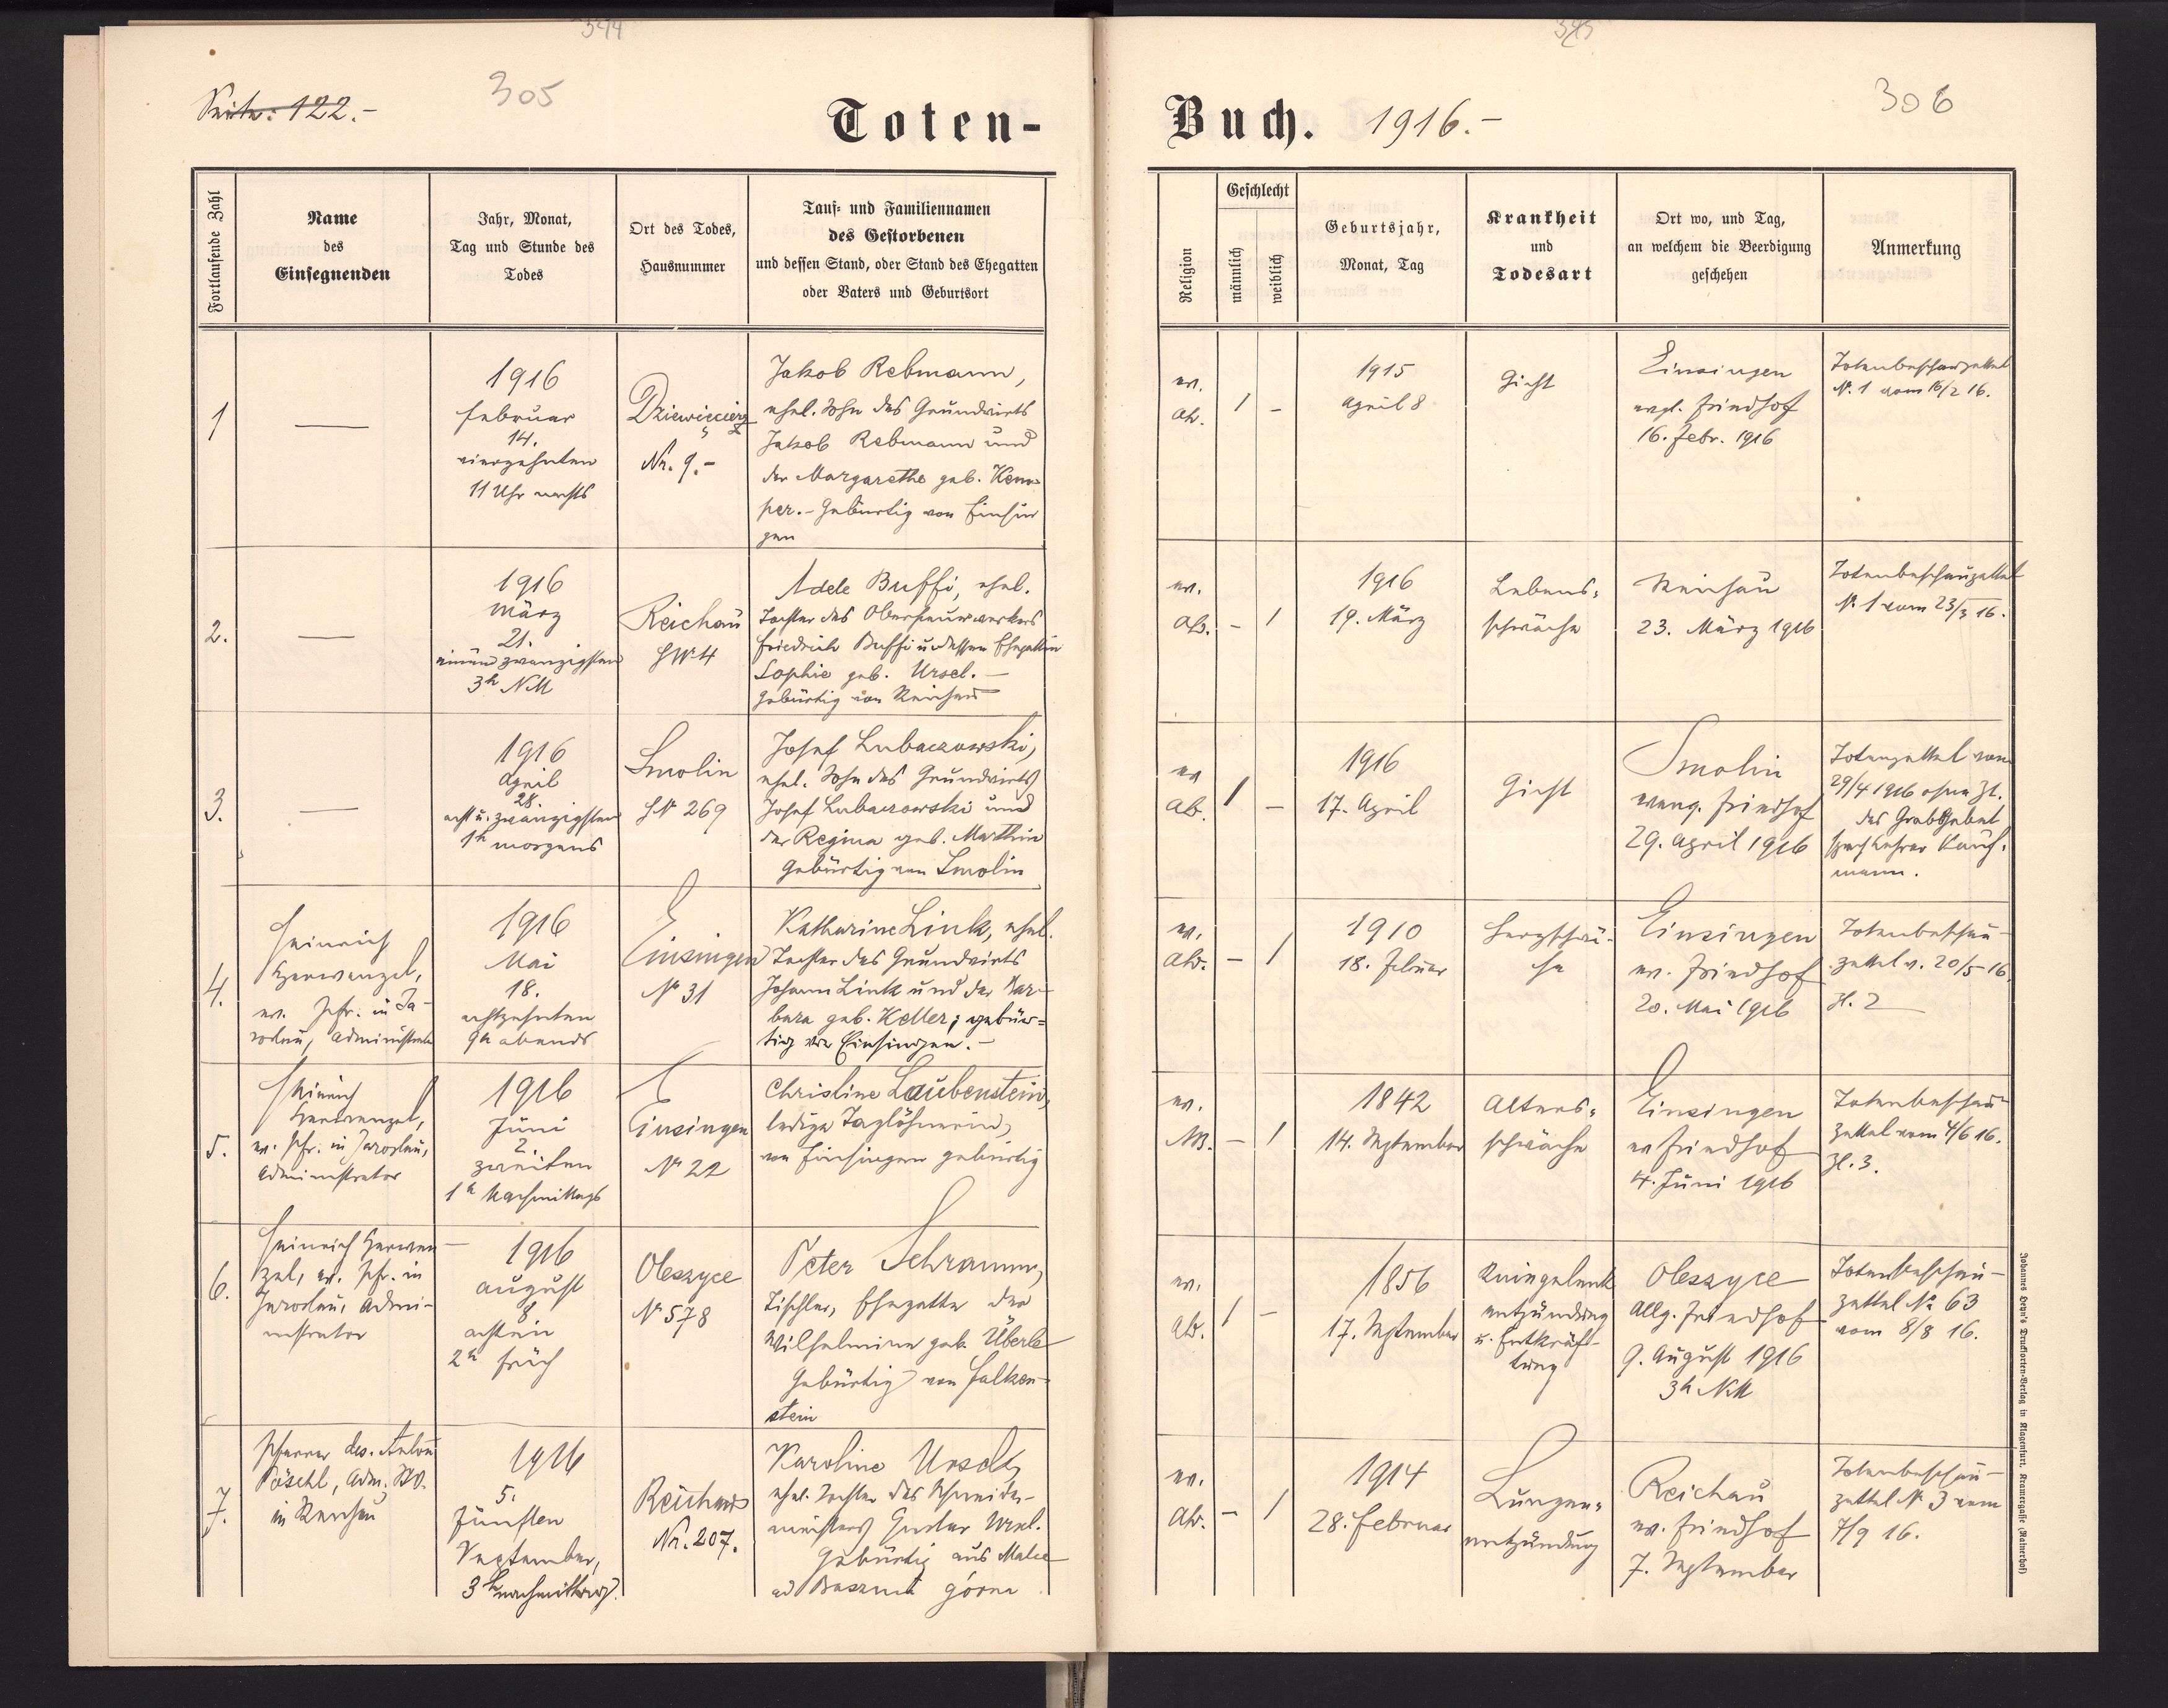 344
345
Seite: 122.-
305
306
Toten-
Buch. 1916.-
Fortlaufende Zahl
Name
des
Einsegnenden
Jahr, Monat,
Tag und Stunde des
Todes
Ort des Todes,
Hausnummer
Tauf- und Familiennamen
des Gestorbenen
und dessen Stand, oder Stand des Ehegatten
oder Vaters und Geburtsort
Religion
Geschlecht
männlich
weiblich
Geburtsjahr,
Monat, Tag
Krankheit
und
Todesart
Ort wo, und Tag,
an welchem die Beerdigung
geschehen
Anmerkung
1
—
1916
Februar
14.
vierzehnten
11 Uhr nachts
Nr. 9.-
Jakob Rebmann,
ehel. Sohn des Grundwirts
Jakob Rebmann und
der Margarethe geb. Kem-
per.- Gebürtig von Einsin
gen
ev.
AB.
1
-
1915
April 8
Gicht
Einsingen
evgl. Friedhof
16. Febr. 1916
Totenbeschauzettel
Nr. 1 vom 16/2 16.
2.
—
1916
März
21.
einundzwanzigsten
3h NM
Reichau
HNr 4
Adele Buffi, ehel.
Tochter des Oberfeuerwerkers
Friedrich Buffi u. dessen Ehegattin
Sophie geb. Ursel.-
Gebürtig von Reichau
ev.
AB.
-
1
1916
19. März
Lebens-
schwäche
Reichau
23. März 1916
Totenbeschauzettel
Nr. 1 vom 23/3 16.
3.
—
1916
April
28.
acht u. zwanzigsten
1h morgens
Smolin
HNr 269
Josef Lubaczowski,
ehel. Sohn des Grundwirts
Josef Lubaczowski und
der Regina geb. Marthin
Gebürtig von Smolin
ev
AB.
1
-
1916
17. April
Gicht
Smolin
evang. Friedhof
29. April 1916
Totenzettel vom
29/4 1916 ohne Zl.
das Grabgebet
sprach Lehrer Kauf-
mann.
4.
Heinrich
Herwenzel,
ev. Pfr. in Ja-
roslau, Administrator
1916
Mai
18.
achtzehnten
9h abends
Einsingen
Nr 31
Katharine Link, ehel.
Tochter des Grundwirts
Johann Link und der Bar-
bara geb. Keller; gebür-
tig von Einsingen.-
ev.
AB.
-
1
1910
18. Februar
Einsingen
ev. Friedhof
20. Mai 1916
Totenbeschau-
zettel v. 20/5 16
Zl. 2
5.
Heinrich
Herwenzel,
ev. Pfr. in Jaroslau,
Administrator
1916
Juni
2.
zweiten
1h Nachmittags
Einsingen
Nr 22
Christine Laubenstein,
ledige Taglöhnerin,
von Einsingen gebürtig
ev.
AB.
-
1
1842
14. September
Alters-
schwäche
Einsingen
ev Friedhof
4. Juni 1916
Totenbeschau-
zettel vom 4/6 16.
Zl. 3.
6.
Heinrich Herwen-
zel, ev. Pfr. in
Jaroslau, Admi-
nistrator
1916
August
8
achten
2h früh
Oleszyce
Nr 578
Peter Schramm,
Tischler, Ehegatte der
Wilhelmine geb. Überle
Gebürtig von Falken-
stein
ev.
AB.
1
-
1856
17. September
Kniegelenk
entzündung
u. Entkräf-
tung
Oleszyce
Allg. Friedhof
9. August 1916
3h NM
Totenbeschau-
zettel Nr 63
vom 8/8 16.
7.
Pfarrer des.
Pöschl, Adm.
in Reichau
1916
5.
Fünften
September,
3h nachmittags.
Reichau
Nr. 207.
Karoline Ursel,
ehel. Tochter des Schneider-
meisters Gustav Ursel.
Gebürtig aus
górne
ev.
AB.
-
1
1914
28. Februar
Lungen-
entzündung
Reichau
ev. Friedhof
7. September
Totenbeschau-
zettel Nr 3 vom
7/9 16.
Johannes Heyn's Drucksorten-Verlag in Klagenfurt, Kramergasse (Rainerhof)